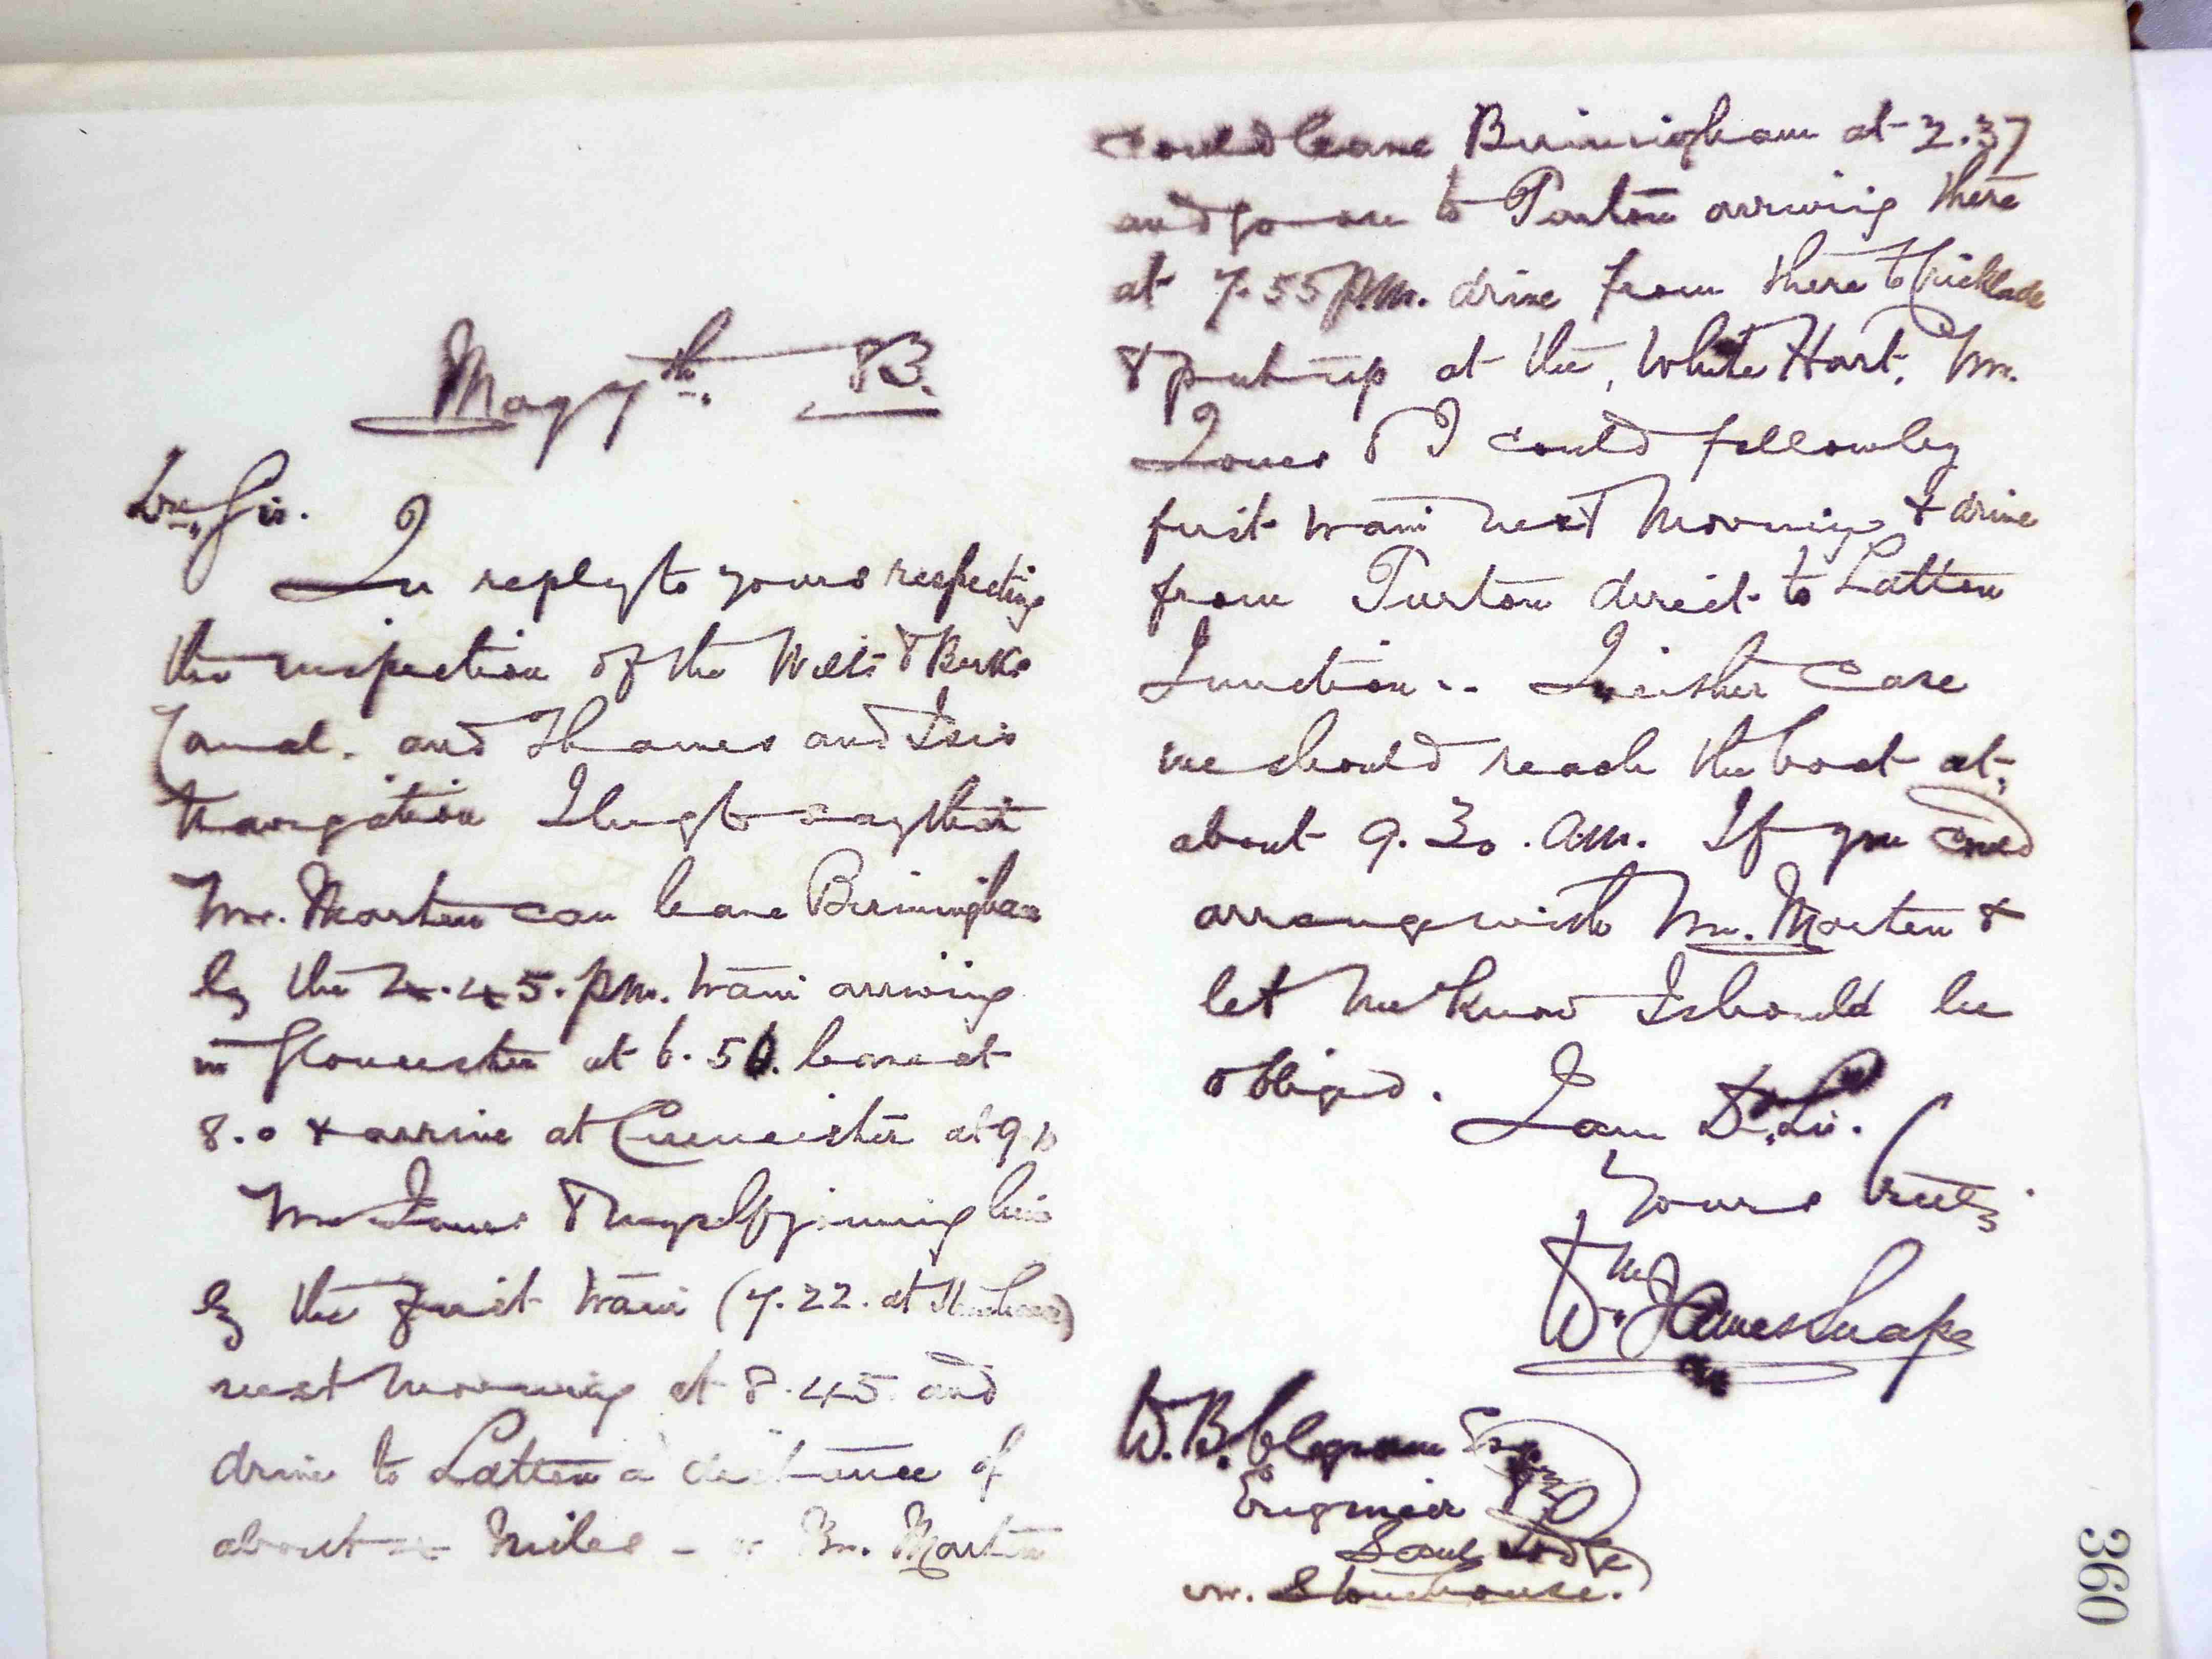 May 7th. 83.
Dr. Sir.
In reply to yours respecting
the inspection of the Wilts & Berks
Canal. and Thames and Isis
Navigation I beg to say that
Mr. Marten can leave Birmingham
by the 4.45. pm. train arriving
in Gloucester at 6.50. leave at
8.0 & arrive at Cirencester at 9.10
Mr Jones & myself joining him
by the first train (7.22. at Stonehouse)
next morning at 8.45 and
drive to Latton a distance of
about miles - or Mr. Marten
could leave Birmingham at 2.37
and go on to Purton arriving there
at 7.55 pm. drive from there to Cricklade
& put up at the, White Hart, Mr.
Jones & I could follow by
first train next morning & drive
from Purton direct to Latton
Junction.. In either case
we should reach the boat at,
about 9.30. am. If you could
arrange with Mr. Marten &
let me know I should be
obliged.
I am Dr. Sir.
Yours truly
Wm. James Snape
W. B. Clegram Esqr
Engineer
Saul Lodge
nr. Stonehouse.
360